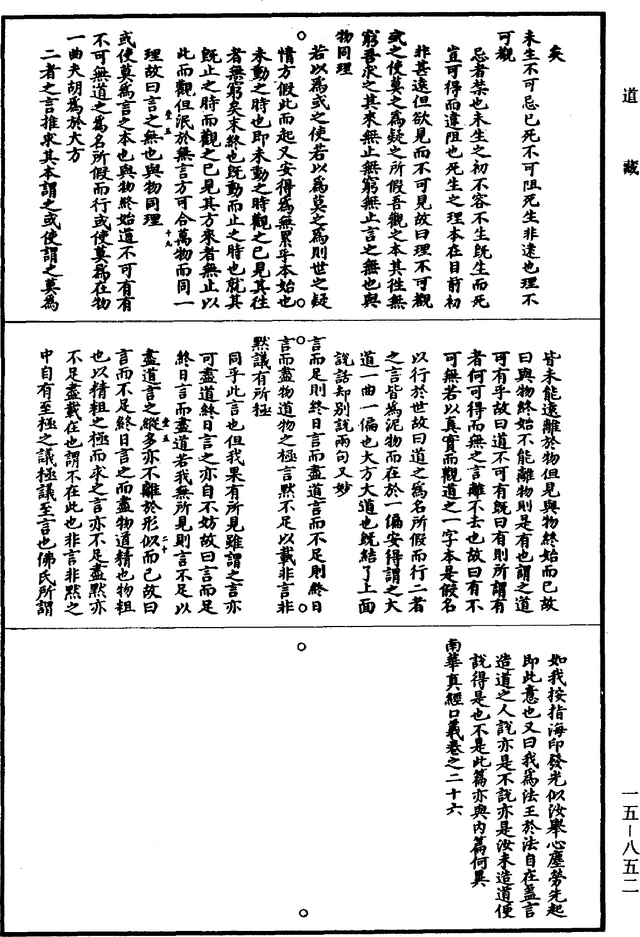 道藏
矣
未生不可忌已死不可阻死生非遠也理不
可觀
忌者禁也未生之初不容不生既生而死
豈可得而違阻也死生之理本在目前初
非甚遠但欲見而不可見故曰理不可觀
或之使莫之為疑之所假吾觀之本其往無
窮吾求之其來無止無窮無止言之無也與
物同理
若以為或之使若以為莫之為則世之疑
情方假此而起又安得為無累乎本始也
未動之時也即未動之時觀之已見其往
者無窮矣末終也既動而止之時也就其
既止之時而觀之已見其方來者無止以
此而觀但泯於無言方可合萬物而同一
理故曰言之無也與物同理
或使莫為言之本也與物終始道不可有有
不可無道之為名所假而行或使莫為在物
一曲夫胡為於大方
二者之言推求其本謂之或使謂之莫為
皆未能遠離於物但見與物終始而已故
曰與物終始不能離物則是有也謂之道
可有乎故曰道不可有既曰有則所謂有
者何可得而無之言離不去也故曰有不
可無若以真實而觀道之一字本是假名
以行於世故曰道之為名所假而行二者
之言皆為泥物而在於一偏安得謂之大
道一曲一偏也大方大道也既結了上面
說話却別說兩句又妙
言而足則終日言而盡道言而不足則終日
言而盡物道物之極言默不足以載非言非
默議有所極
同乎此言也但我果有所見雖謂之言亦
可盡道終日言之亦自不妨故曰言而足
終日言而盡道若我無所見則言不足以
盡道言之縱多亦不離於形似而已故曰
言而不足終日言之而盡物道精也物粗
也以精粗之極而求之言亦不足盡默亦
不足盡載在也謂不在此也非言非默之
中自有至極之議極議至言也佛氏所謂
如我按指海印發光似汝舉心塵勞先起
即此意也又曰我為法王於法自在蓋言
造道之人說亦是不說亦是汝未造道便
說得是也不是此篇亦與內篇何異
南華真經口義卷之二十六
一五—八五二